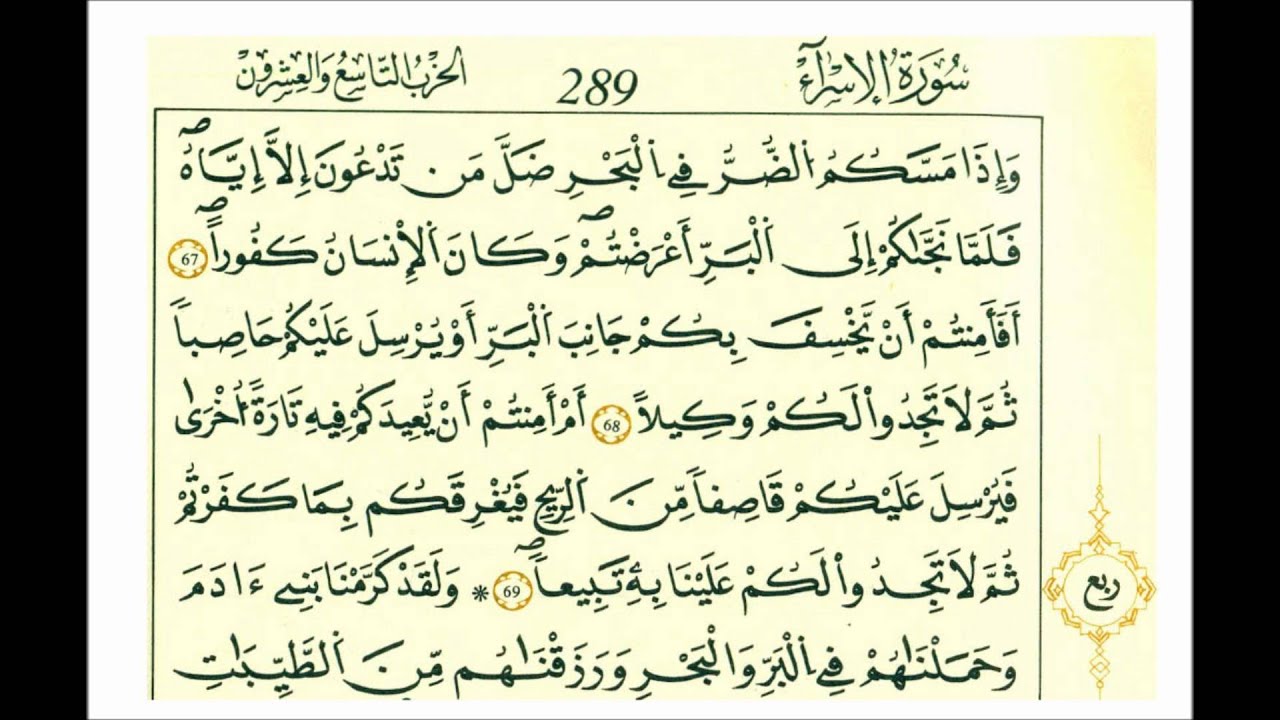 سُورَةُ الإِسْرَآءِ
289
الحِزْبُ التَّاسِعُ وَالعِشْرُونَ
وَإِذَا مَسَّكُمُ الضُّرُّ فِے الْبَحْرِ ضَلَّ مَن تَدْعُونَ إِلَّا إِيَّاهُ ص
فَلَمَّا نَجَّىٰكُمْ إِلَى الْبَرِّ أَعْرَضْتُمْ ص وَكَانَ الْإِنْسَانُ كَفُوراً ص 67
أَفَأَمِنتُمْ أَنْ يَّخْسِفَ بِكُمْ جَانِبَ الْبَرِّ أَوْ يُرْسِلَ عَلَيْكُمْ حَاصِباً
ثُمَّ لَا تَجِدُواْ لَكُمْ وَكِيلاً 68 أَمْ أَمِنتُمْ أَنْ يُّعِيدَكُمْ فِيهِ تَارَةً أُخْرَىٰ
فَيُرْسِلَ عَلَيْكُمْ قَاصِفاً مِّنَ الرِّيحِ فَيُغْرِقَكُم بِمَا كَفَرْتُمْ
ثُمَّ لَا تَجِدُواْ لَكُمْ عَلَيْنَا بِهِۦ تَبِيعاً ص 69 * وَلَقَدْ كَرَّمْنَا بَنِے ءَادَمَ
ربع
وَحَمَلْنَٰهُمْ فِے الْبَرِّ وَالْبَحْرِ وَرَزَقْنَٰهُم مِّنَ الطَّيِّبَٰتِ